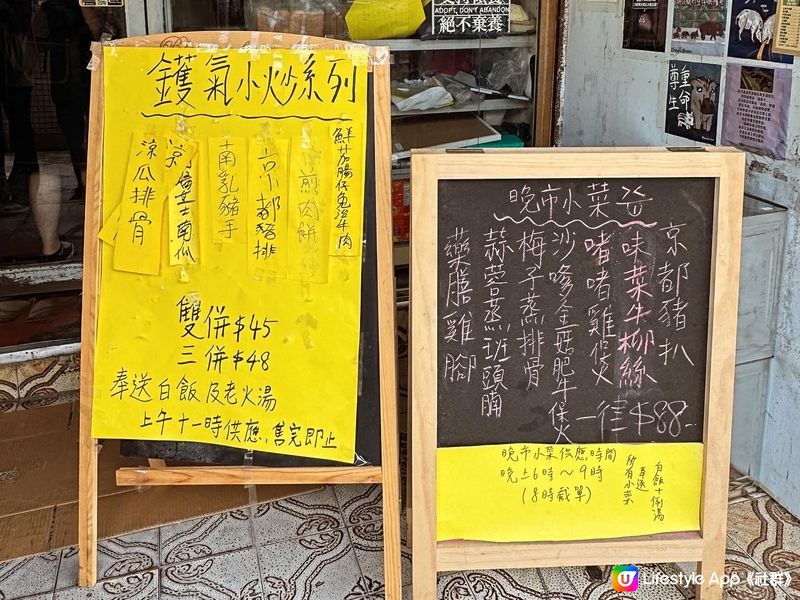 鑊氣小炒系列
鮮茄腸仔免治牛肉
煎肉餅
京都豬排
南乳豬手
南瓜
涼瓜排骨
雙併$45
三併$48
奉送白飯及老火湯
上午十一時供應,售完即止
ADOPT, DON'T ABANDON
絕不棄養
尊重生命
晚市小菜
京都豬扒
味菜牛柳絲
啫啫雞煲
沙嗲金菇肥牛煲
梅子蒸排骨
蒜蓉蒸班頭腩
藥膳雞腳
一律$88.-
晚市小菜供應時間
晚上6時~9時
(8時截單)
所有小菜
奉送
白飯+例湯
Lifestyle App《社群》